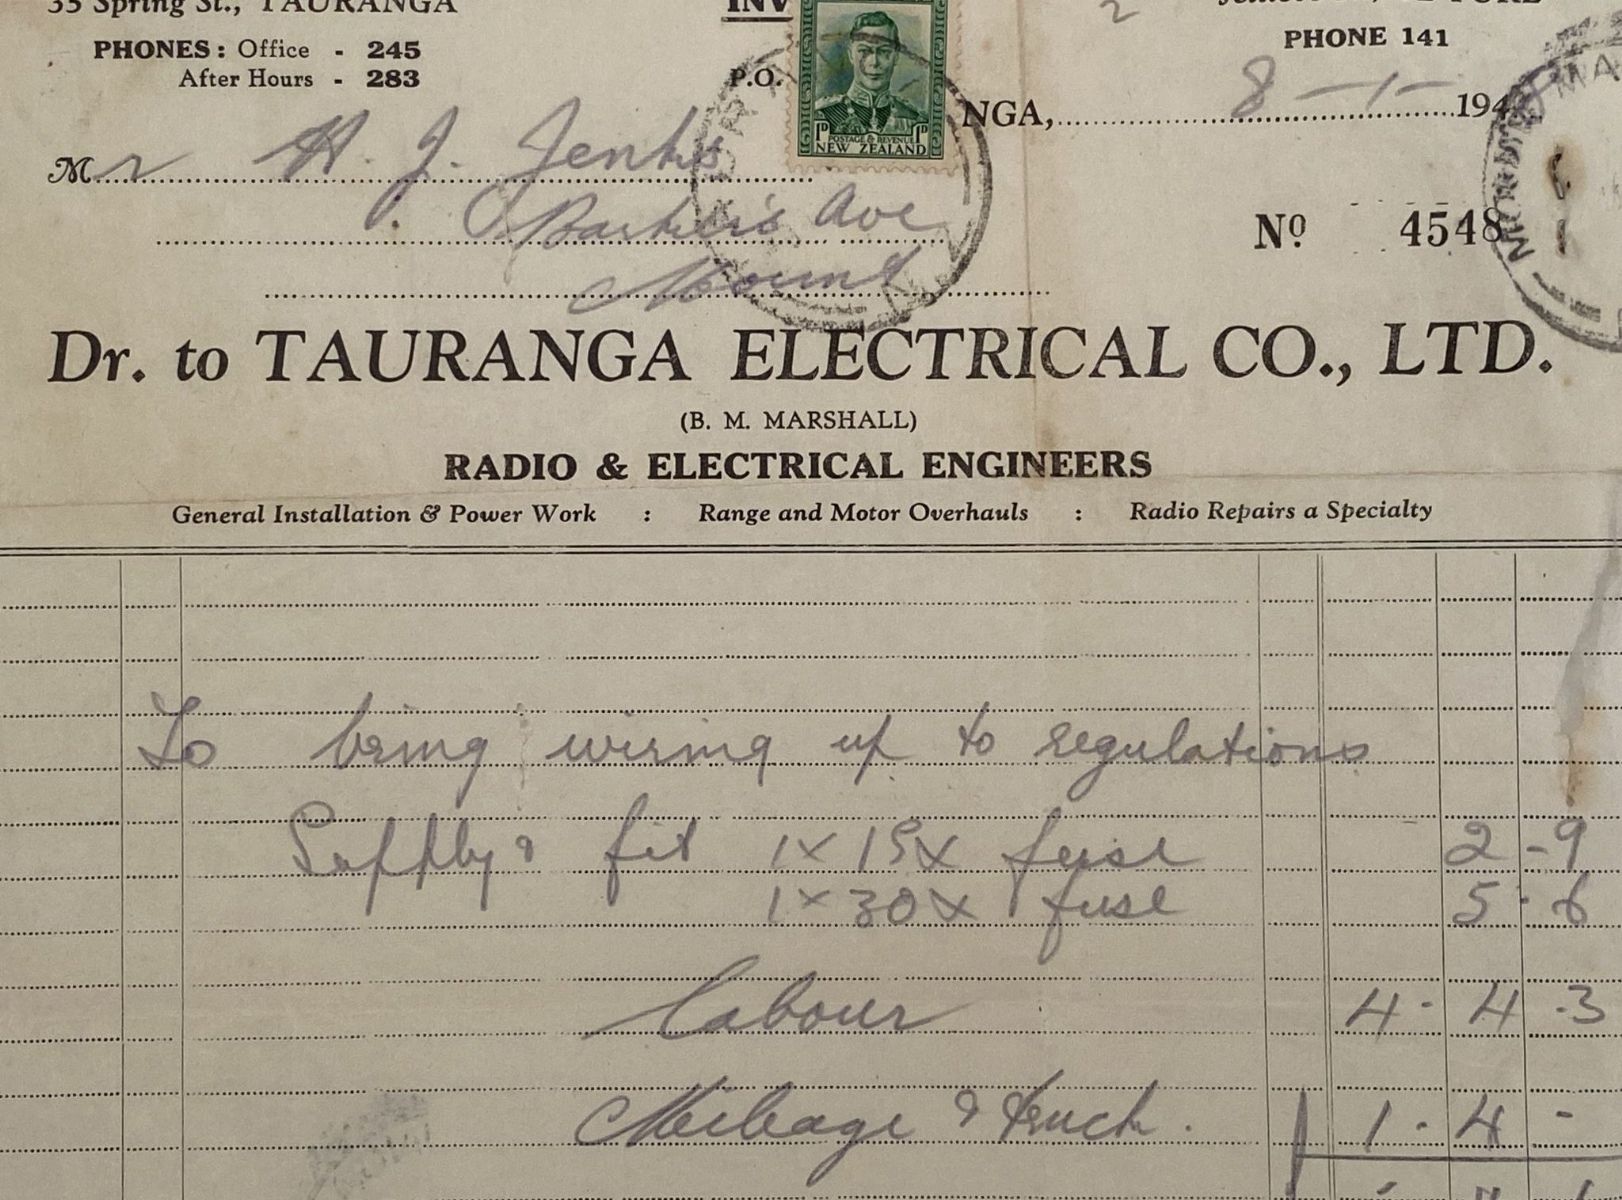 35 Spring St., TAURANGA
INV
PHONE 141
PHONES: Office - 245
After Hours - 283
P.O.
1D POSTAGE & REVENUE 1D
NEW ZEALAND
NGA, 8 - 1 - 194
Mr H. J. Jenks
Ave
Mount
No 4548
Dr. to TAURANGA ELECTRICAL CO., LTD.
(B. M. MARSHALL)
RADIO & ELECTRICAL ENGINEERS
General Installation & Power Work : Range and Motor Overhauls : Radio Repairs a Specialty
To bring wiring up to regulations
Supply & fit 1 x 15 x fuse 2 - 9
1 x 30 x fuse 5 - 6
Labour 4 - 4 - 3
Mileage & truck. 1 - 4 -